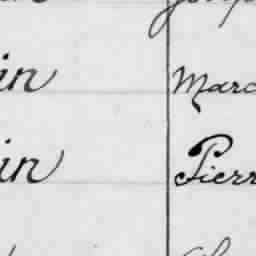 in Marc
in Pierr